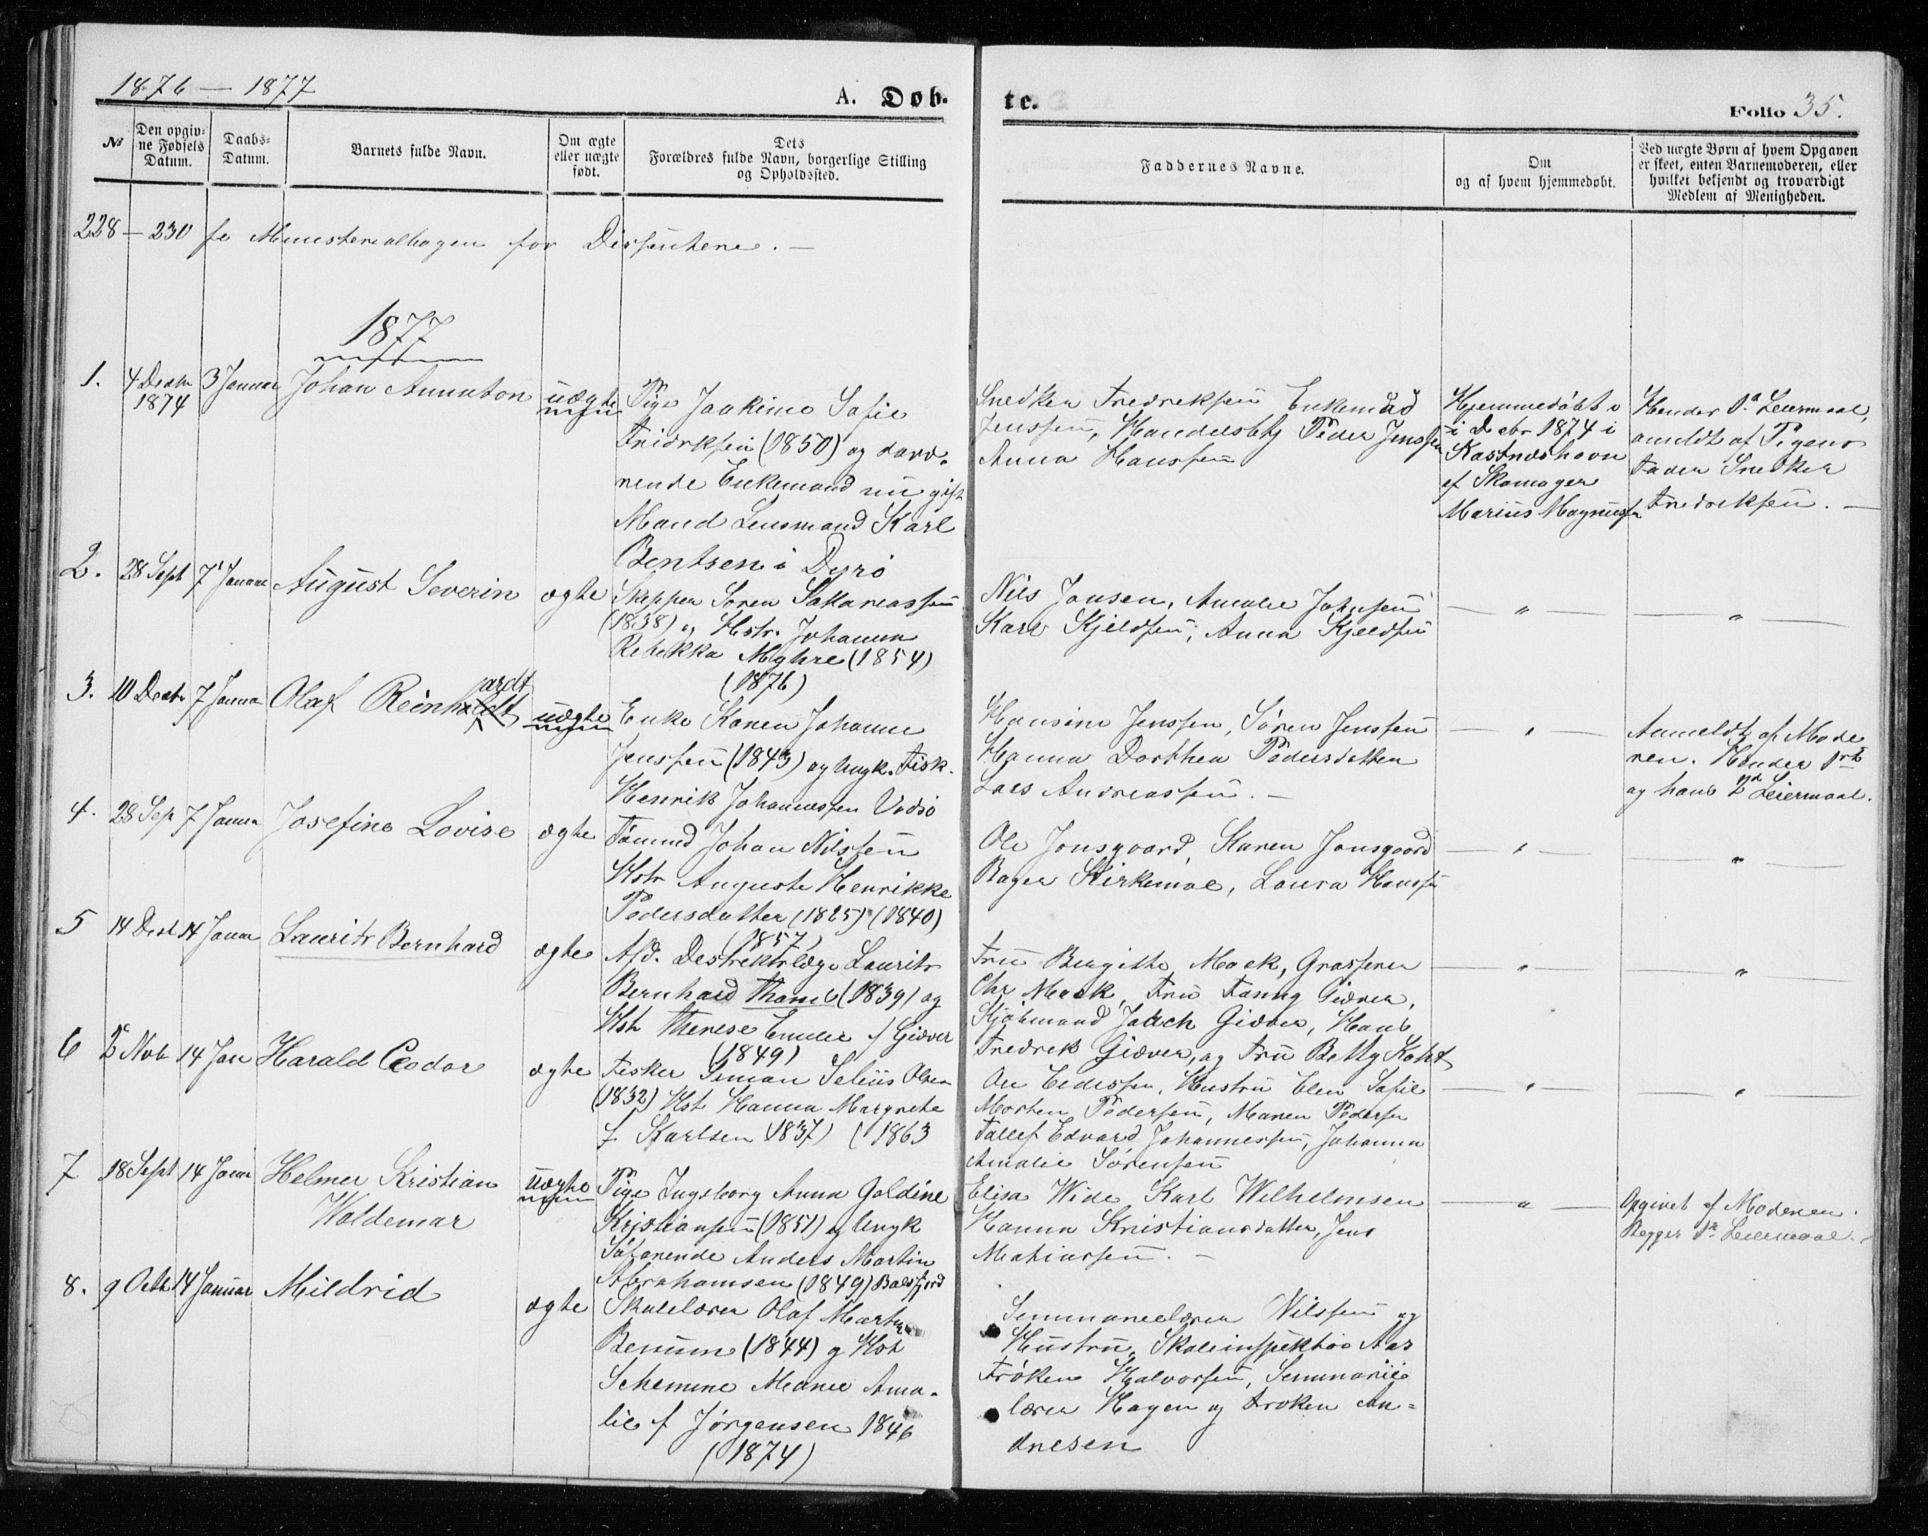 1876 — 1877
A. Døb-
te.
Folio 35.
№
Den opgiv-
ne Fødsels
Datum.
Daabs-
Datum.
Barnets fulde Navn.
Om ægte
eller uægte
født.
Dets
Forældres fulde Navn, borgerlige Stilling
og Opholdssted.
Faddernes Navne.
Om
og af hvem hjemmedøbt.
Ved uægte Børn af hvem Opgaven
er skeet, enten Barnemoderen, eller
hvilket bekjendt og troværdigt
Medlem af Menigheden.
228 — 230 se Ministerialbogen for Dissentere. —
1877
1.
4 Decbr
1874
3 Januar
Johan Annuton
uægte
Pige Joakime Sofie
Fridrksen (1850) og davæ-
rende Enkemand nu gift
Mand Lensmand Karl
Bentsen i Dyrö
Snedker Fredreksen Enkemad
Jenssen, Handelsbtj Peder Jenssen
Anna Hanssen
Hjemmedöbt
i Decbr 1874 i
Kastneshavn
af Skomager
Marius Magnussen
Hendes 1ª Leiermaal,
anmeldt af Pigens
Fader Snedker
Fredreksen. —
2.
28 Sept
7 Januar
August Severin
ægte
Skipper Sören Sakareassen
(1838) og Hstr. Johanna
Rebekka Myhre (1854)
(1876)
Nils Jansen, Amalie Johnsen
Karl Kjeldsen, Anna Kjeldsen
— " —
— " —
3.
10 Decbr
7 Januar
Olaf Reinhaldt
ardt
uægte
Enke Karen Johanne
Jenssen (1843) og Ungk. Fisk.
Henrik Johannessen Vadsö
Hansine Jenssen, Sören Jenssen
Hanna Dorthea Pedersdatter
Lars Andreassen. —
— " —
Anmeldt af Mode
ren. Hendes 1ste
og hans 2d Leiermaal.
4.
28 Sep
7 Januar
Josefine Lovise
ægte
Tömmd Johan Nilssen
Hstr Auguste Henrikke
Pedersdatter (1825) (1840)
(1857)
Ole Jonsgaard, Karen Jonsgaard
Bager Kirkemoe, Laura Hanssen
— " —
— " —
5
14 Decb
14 Januar
Lauritz Bernhard
ægte
Afd. Destrektslæge Lauritz
Bernhard Thams (1839) og
Hst Therese Emilie f Giæver
(1849)
Fru Birgitte Mack, Grosserer
Chr Mack, Fru Fanny Giæver,
Kjöbmand Jakob Giæver, Hans
Fredrek Giæver, og Fru Betty Koht
— " —
— " —
6
2 Nob
14 Jan
Harald Ceodor
ægte
Fisker Simon Selius Olsen
(1832) Hst Hanna Margrete
f Karlsen (1837) (1863
Ole Edissen, Hustru Elen Sofie
Morten Pedersen, Maren Pedersen
Tallef Edvard Johannessen, Johanna
Amalie Sörensen
— " —
— " —
7
18 Sept
14 Januar
Helmer Kristian
Waldemar
uægte
Pige Ingeborg Anna Goldine
Kristiansen (1851) og Ungk
Söfarende Anders Martin
Abrahamsen (1849) Balsfjord
Elisa Wide Karl Wilhelmsen
Hanna Kristiansdatter, Jens
Matiassen. —
— " —
Opgivet af Moderen.
Begges 1ª Leiermaal. —
8.
9 Octb
14 Januar
Mildrid
ægte
Skolelærer Olaf Martin
Benum (1844) og Hst
Schemine Marie Ama-
lie f Jørgensen 1846
(1874)
Semmarielærer Nilssen og
Hustru, Skoleinspektör Aas
Fröken Halvorsen, Semmarie
lærer Hagen og Fröken An-
dresen